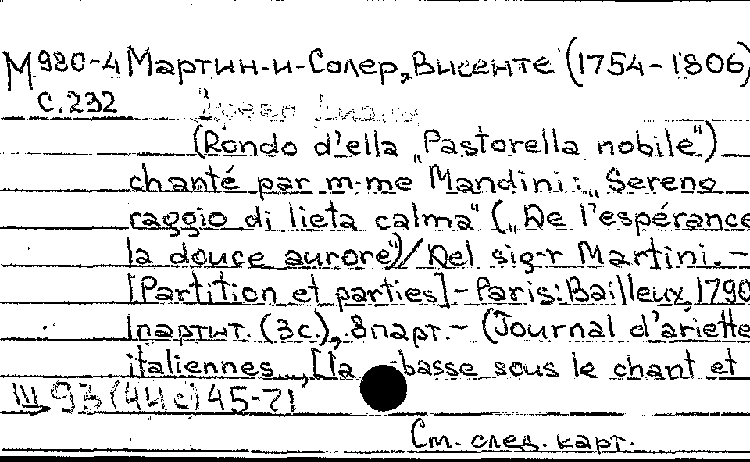 М980-4 Мартин-и-Солер, Висенте (1754-1806)
с.232
(Rondo d'ella „Pastorella nobile")
chanté par m-me Mandini: „Sereno
raggio di lieta calma" („De l'espérance
la douce aurore")/Del sig-r Martini.-
[Partition et parties].-Paris: Bailleux, 1790
1партит. (3с.), 8парт.- (Journal d'ariette
italiennes..., [la basse sous le chant et
III 93 (44с) 45-71
См. след. карт.